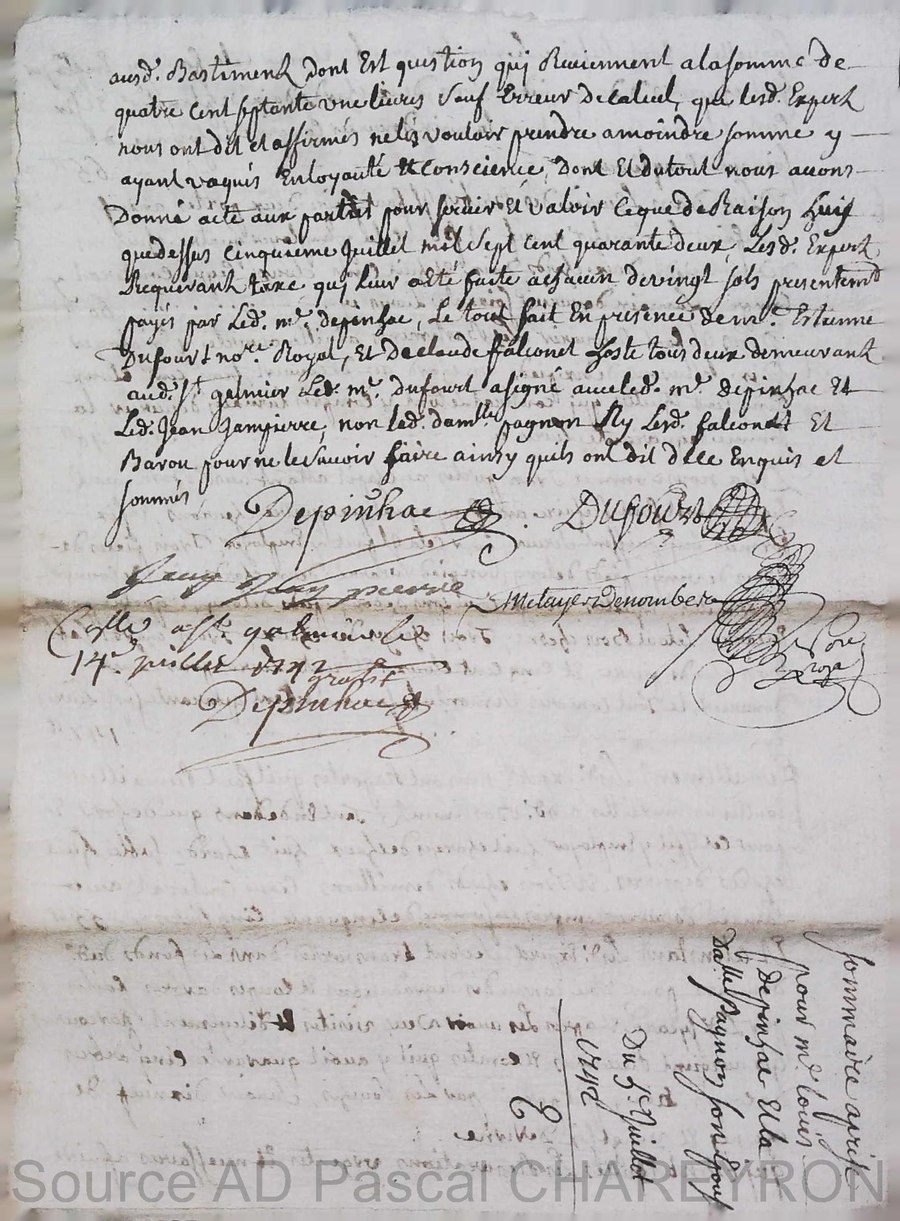 ausd. Bastiment dont Est question qui Reviennent a la somme de
quatre cent septante une livres sauf Erreur de calcul, que lesd. Expert
nous ont dit et affirmés ne les vouloir prendre a moindre somme y
ayant vaqués En loyauté et conscience, Dont Et du tout nous avons
Donné acte aux parties pour servir Et valoir ce que de Raison
que dessus cinquieme Juillet mil sept cent quarante deux, Lesd. Expert
Requerant taxe qui leur a Eté faite a chacun de vingt sols presentemt
payés par Led. mr. depinhac, Le tout fait En presence de mr. Estienne
Dufourt nore. Royal, Et De claude falconet hoste tous deux demeurant
aud. St. galmier Led. mr. Dufourt a signé avec led. mr. depinhac Et
Led. Jean Jampierre, non lad. damlle pagnon Ny Lesd. falconet Et
Barou pour ne le scavoir faire ainsy quils ont dit de ce Enquis et
sommés
Depinhac Dufourt
Jean Jean pierre
Metayer Denombere
Collé a St. galmier le
14e. juillet 1742
gratis
Depinhac
Sommaire aprise
pour mr. Louis
Depinhac Et la
Dalle Pagnon son Epouse
Du 5e. Juillet
1742
Source AD Pascal CHAREYRON